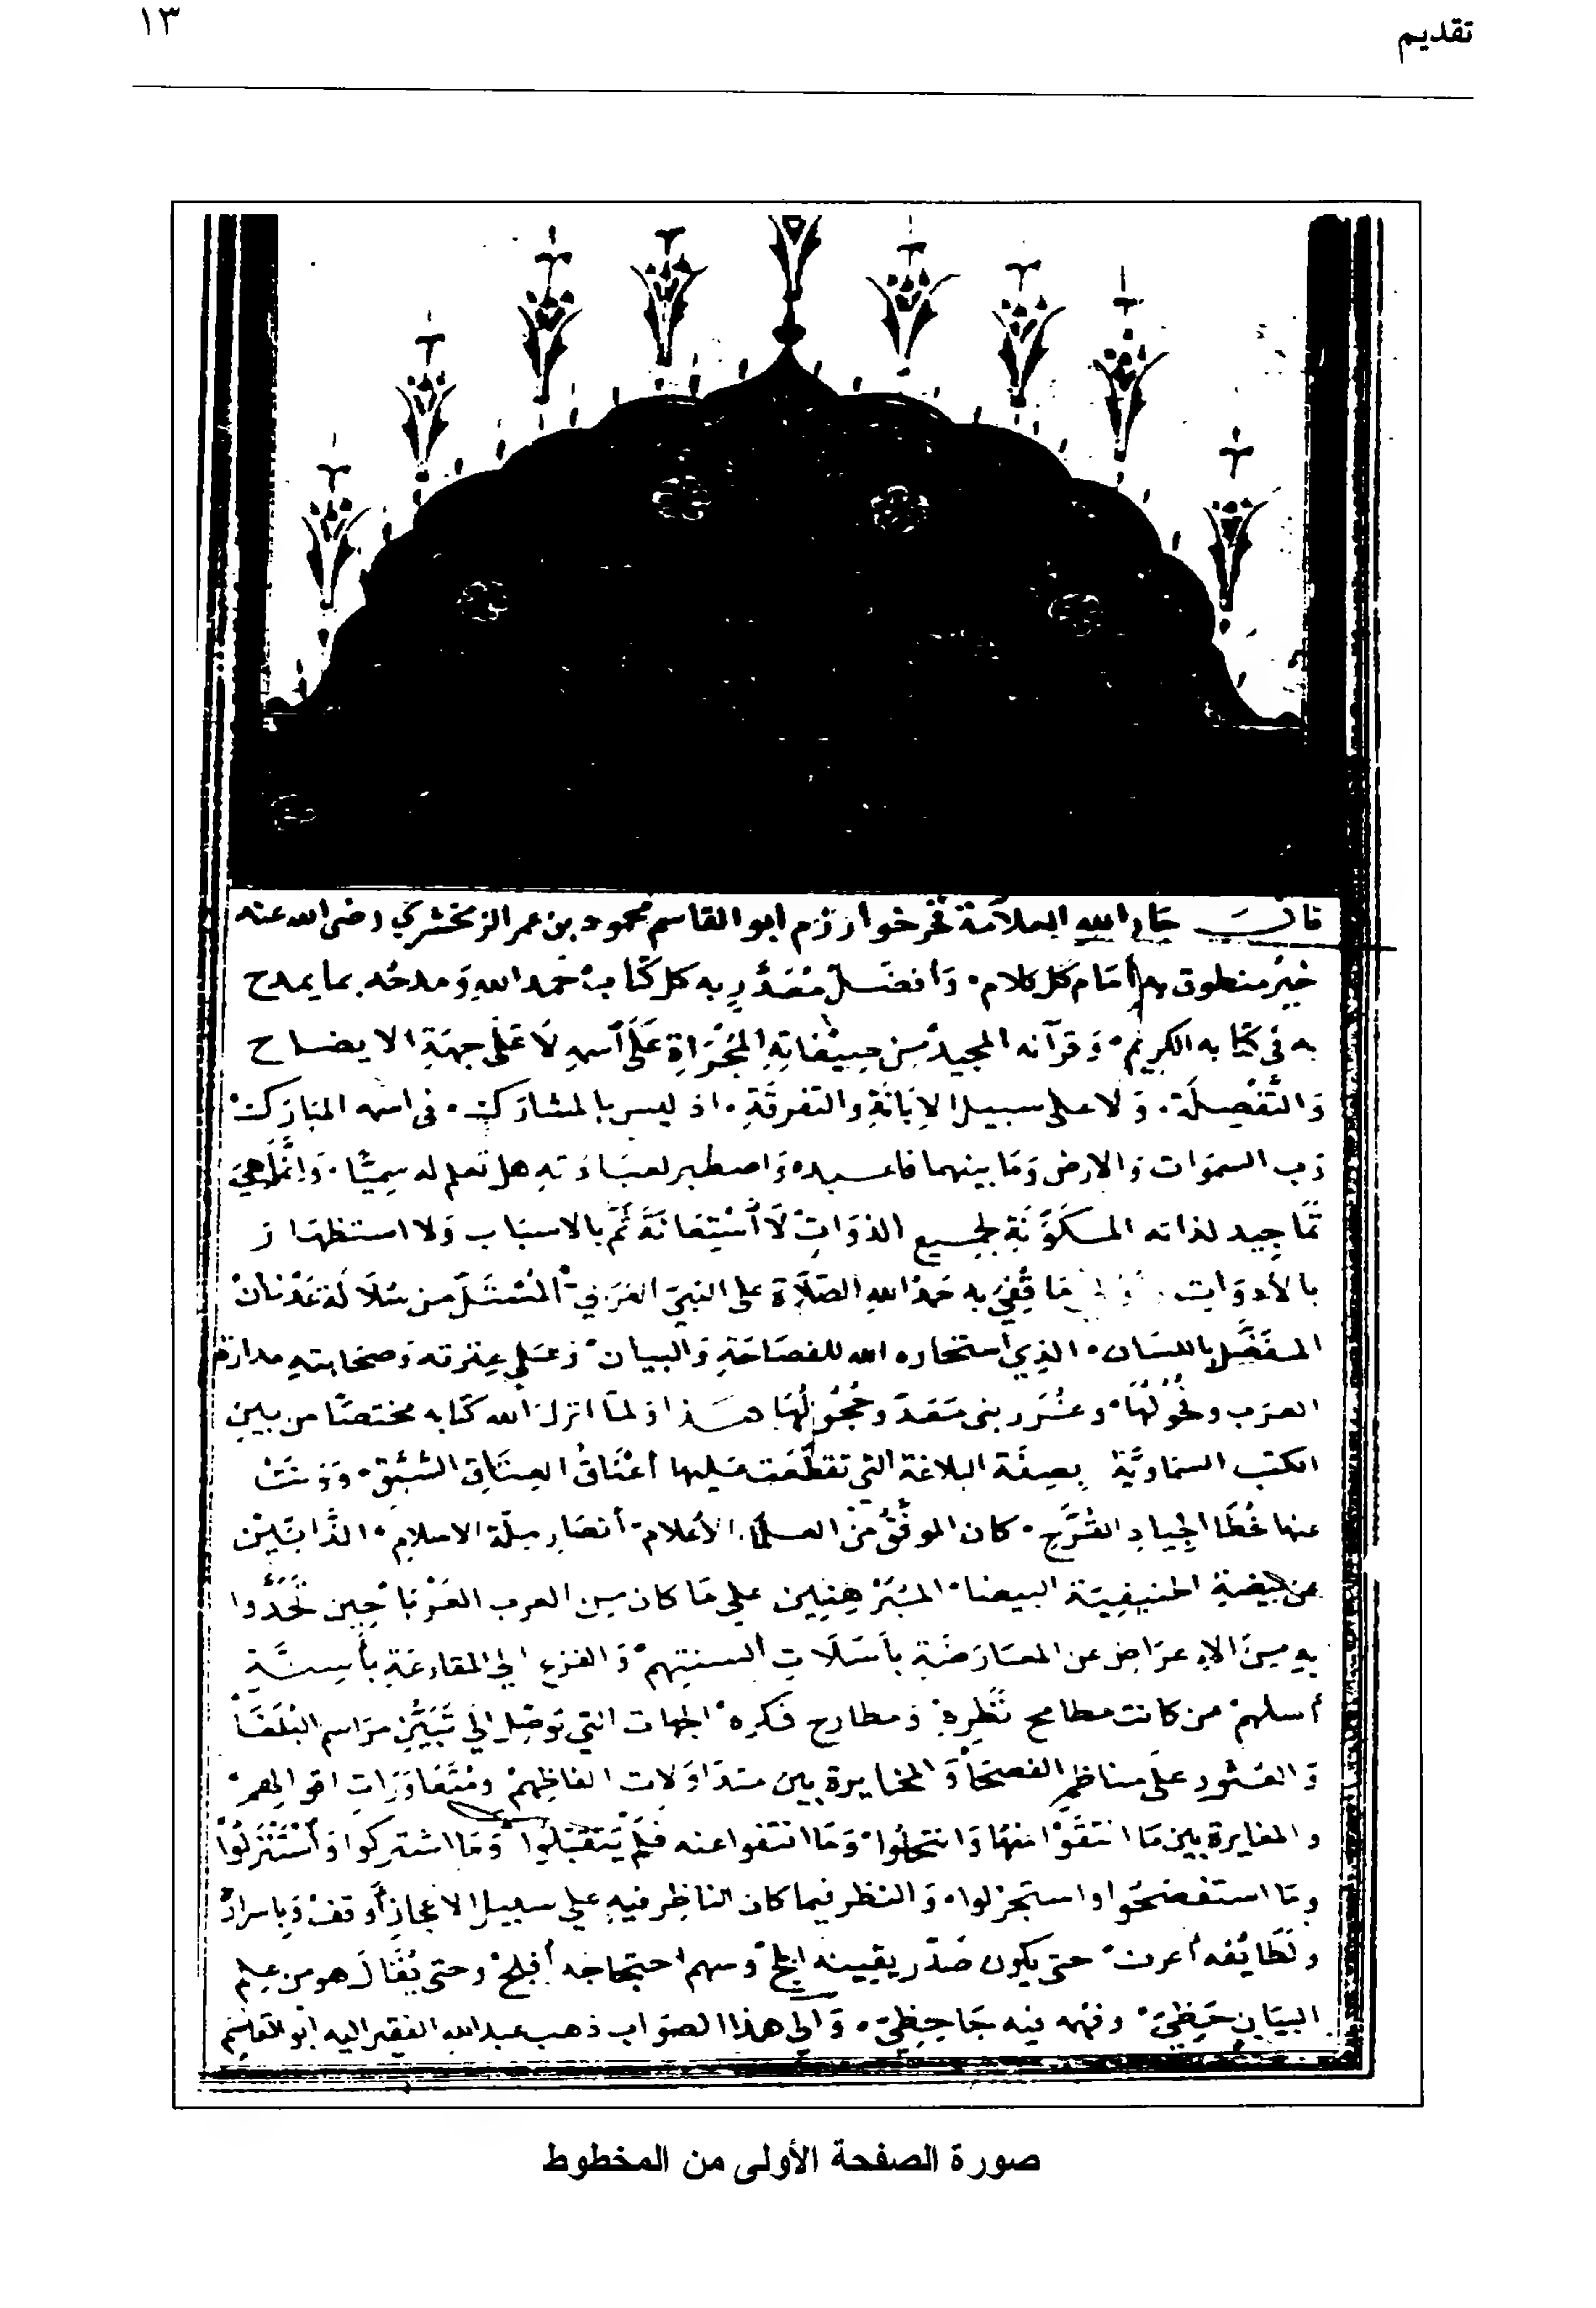 تقديم
١٣
قال جار الله العلامة فخر خوارزم ابو القاسم محمود بن عمر الزمخشري رضى الله عنه
خير منطوق به أمام كل كلام وأفضل مصدّر به كل كتاب حمد الله ومدحه بما يمدح
به في كتابه الكريم وقرآنه المجيد من صفاته المجراة على اسمه لا على جهة الايضاح
والتفصلة ولا على سبيل الإبانة والتفرقة اذ ليس بالمشارك فى اسمه المبارك
رب السموات والارض وما بينهما فاعبده واصطبر لعبادته هل تعلم له سميّا وانما هي
تماجيد لذاته المكوّنة لجميع الذوات لا استعانة ثَمّ بالاسباب ولا استظهار
بالأدوات ما قُفّي به حمدُ الله الصلاة على النبي العربي المستلّ من سلالة عدنان
المفضّل باللسان الذي استخاره الله للفصاحة والبيان وعلى عترته وصحابته مدارة
العرب وفحولها وغرر بنى معدّ وحجولها هذا ولما انزل الله كتابه مختصّا من بين
الكتب السماوية بصفة البلاغة التي تقطّعت عليها أعناق العتاق السّبّق وونت
عنها خُطا الجياد القُرّح كان الموفّق من العلماء الأعلام أنصار ملّة الاسلام الذّابّين
عن بيضة الحنيفية البيضا المبرهنين على ما كان من العرب العَرْبا حين تُحُدُّوا
به من الإعراض عن المعارضة بأسَلات ألسنتهم والفزع الى المقارعة بأسنّة
أسلهم من كانت مطامح نظره ومطارح فكره الجهات التي توصّل الى تبيّن مراسم البلغا
والعثور على مناظم الفصحا والمخايرة بين متداولات الفاظهم ومتعاورات اقوالهم
والمغايرة بين ما انتقَوْا منها وانتخلوا وما انتفوا عنه فلم يتقبّلوا وما اشتركوا واستنزلوا
وما استفصحوا واستجزلوا والنظر فيما كان الناظر فيه على سبيل الاعجاز أوقف وباسراره
ولطائفه أعرف حتى يكون صدر يقينه اثلج وسهم احتجاجه أفلج وحتى يقال هو من علم
البيان حَظِيّ وفهمه فيه جاحظيّ والى هذا الصواب ذهب عبد الله الفقير اليه ابو القاسم
صورة الصفحة الأولى من المخطوط